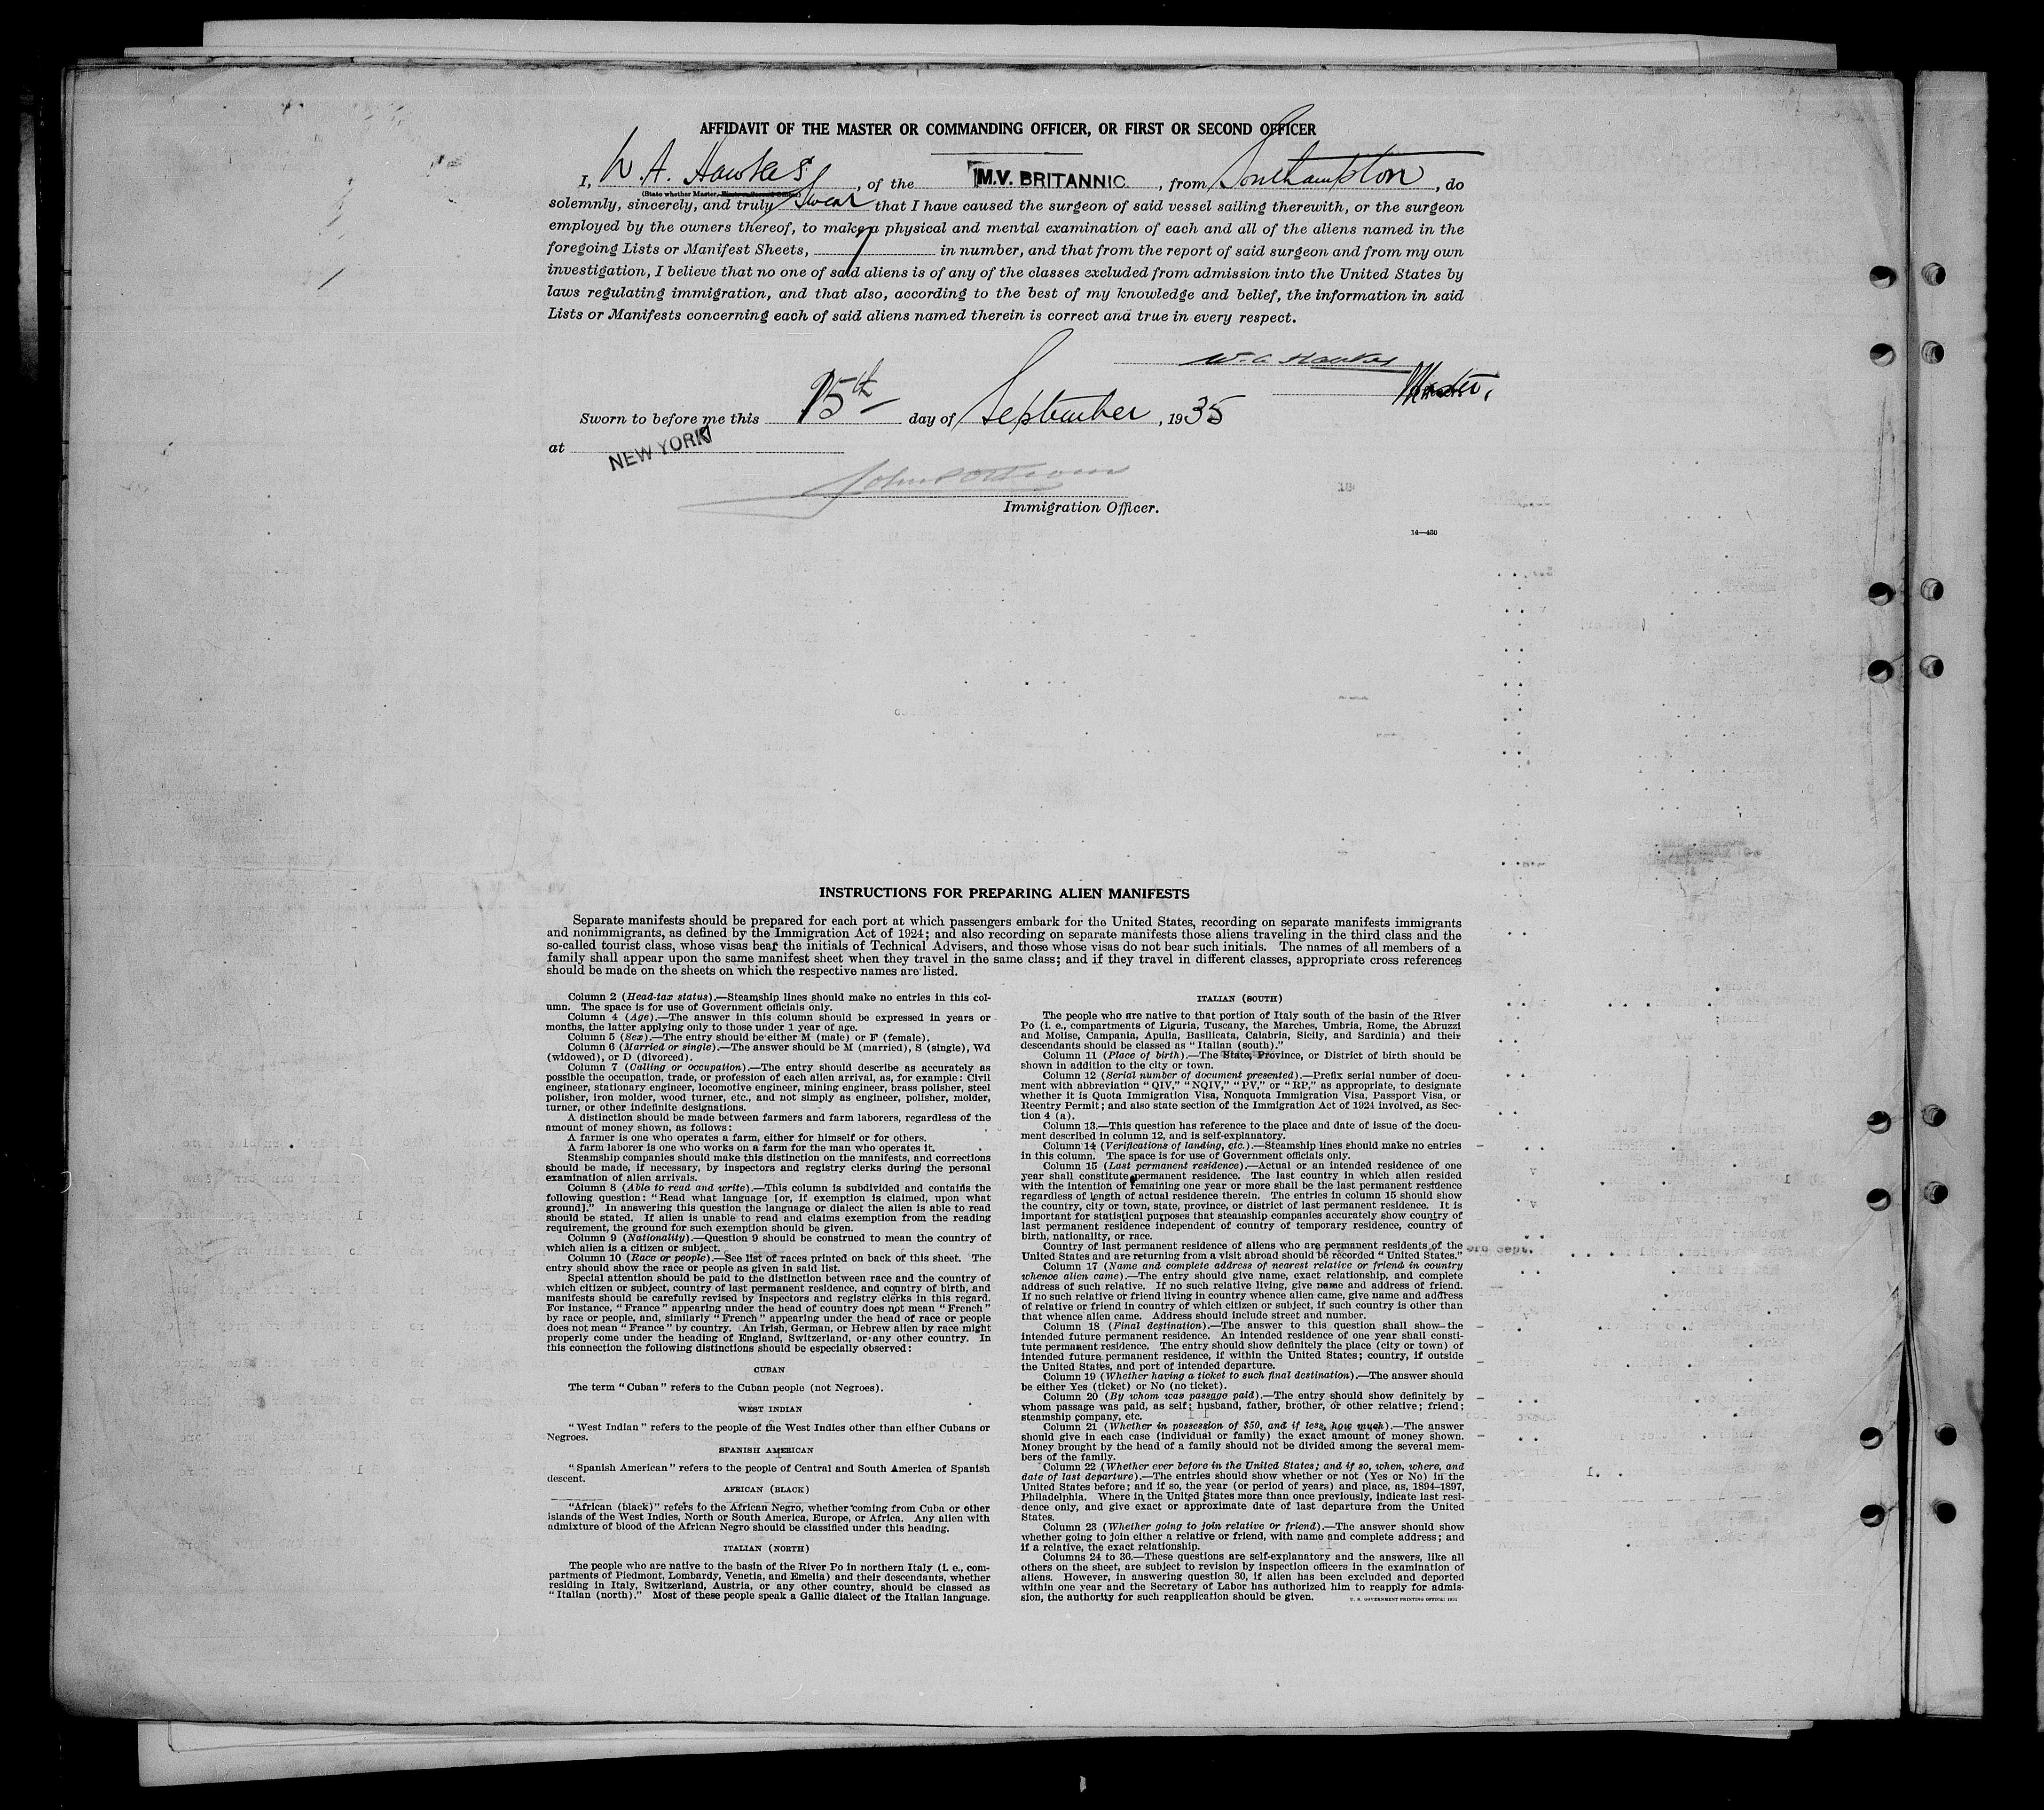 AFFIDAVIT OF THE MASTER OR COMMANDING OFFICER, OR FIRST OR SECOND OFFICER
I, W. A. Hawkes, of the M.V. BRITANNIC, from Southampton, do
(State whether Master, First or Second Officer)
solemnly, sincerely, and truly swear that I have caused the surgeon of said vessel sailing therewith, or the surgeon
employed by the owners thereof, to make a physical and mental examination of each and all of the aliens named in the
foregoing Lists or Manifest Sheets, 7 in number, and that from the report of said surgeon and from my own
investigation, I believe that no one of said aliens is of any of the classes excluded from admission into the United States by
laws regulating immigration, and that also, according to the best of my knowledge and belief, the information in said
Lists or Manifests concerning each of said aliens named therein is correct and true in every respect.
W. A. Hawkes
Master.
Sworn to before me this 15th day of September, 1935
at NEW YORK
Immigration Officer.
14—430
INSTRUCTIONS FOR PREPARING ALIEN MANIFESTS
Separate manifests should be prepared for each port at which passengers embark for the United States, recording on separate manifests immigrants
and nonimmigrants, as defined by the Immigration Act of 1924; and also recording on separate manifests those aliens traveling in the third class and the
so-called tourist class, whose visas bear the initials of Technical Advisers, and those whose visas do not bear such initials. The names of all members of a
family shall appear upon the same manifest sheet when they travel in the same class; and if they travel in different classes, appropriate cross references
should be made on the sheets on which the respective names are listed.
Column 2 (Head-tax status).—Steamship lines should make no entries in this col-
umn. The space is for use of Government officials only.
Column 4 (Age).—The answer in this column should be expressed in years or
months, the latter applying only to those under 1 year of age.
Column 5 (Sex).—The entry should be either M (male) or F (female).
Column 6 (Married or single).—The answer should be M (married), S (single), Wd
(widowed), or D (divorced).
Column 7 (Calling or occupation).—The entry should describe as accurately as
possible the occupation, trade, or profession of each alien arrival, as, for example: Civil
engineer, stationary engineer, locomotive engineer, mining engineer, brass polisher, steel
polisher, iron molder, wood turner, etc., and not simply as engineer, polisher, molder,
turner, or other indefinite designations.
A distinction should be made between farmers and farm laborers, regardless of the
amount of money shown, as follows:
A farmer is one who operates a farm, either for himself or for others.
A farm laborer is one who works on a farm for the man who operates it.
Steamship companies should make this distinction on the manifests, and corrections
should be made, if necessary, by inspectors and registry clerks during the personal
examination of alien arrivals.
Column 8 (Able to read and write).—This column is subdivided and contains the
following question: "Read what language [or, if exemption is claimed, upon what
ground]." In answering this question the language or dialect the alien is able to read
should be stated. If alien is unable to read and claims exemption from the reading
requirement, the ground for such exemption should be given.
Column 9 (Nationality).—Question 9 should be construed to mean the country of
which alien is a citizen or subject.
Column 10 (Race or people).—See list of races printed on back of this sheet. The
entry should show the race or people as given in said list.
Special attention should be paid to the distinction between race and the country of
which citizen or subject, country of last permanent residence, and country of birth, and
manifests should be carefully revised by inspectors and registry clerks in this regard.
For instance, "France" appearing under the head of country does not mean "French"
by race or people, and, similarly "French" appearing under the head of race or people
does not mean "France" by country. An Irish, German, or Hebrew alien by race might
properly come under the heading of England, Switzerland, or any other country. In
this connection the following distinctions should be especially observed:
CUBAN
The term "Cuban" refers to the Cuban people (not Negroes).
WEST INDIAN
"West Indian" refers to the people of the West Indies other than either Cubans or
Negroes.
SPANISH AMERICAN
"Spanish American" refers to the people of Central and South America of Spanish
descent.
AFRICAN (BLACK)
"African (black)" refers to the African Negro, whether coming from Cuba or other
islands of the West Indies, North or South America, Europe, or Africa. Any alien with
admixture of blood of the African Negro should be classified under this heading.
ITALIAN (NORTH)
The people who are native to the basin of the River Po in northern Italy (i. e., com-
partments of Piedmont, Lombardy, Venetia, and Emelia) and their descendants, whether
residing in Italy, Switzerland, Austria, or any other country, should be classed as
"Italian (north)." Most of these people speak a Gallic dialect of the Italian language.
ITALIAN (SOUTH)
The people who are native to that portion of Italy south of the basin of the River
Po (i. e., compartments of Liguria, Tuscany, the Marches, Umbria, Rome, the Abruzzi
and Molise, Campania, Apulia, Basilicata, Calabria, Sicily, and Sardinia) and their
descendants should be classed as "Italian (south)."
Column 11 (Place of birth).—The State, Province, or District of birth should be
shown in addition to the city or town.
Column 12 (Serial number of document presented).—Prefix serial number of docu-
ment with abbreviation "QIV," "NQIV," "PV," or "RP," as appropriate, to designate
whether it is Quota Immigration Visa, Nonquota Immigration Visa, Passport Visa, or
Reentry Permit; and also state section of the Immigration Act of 1924 involved, as Sec-
tion 4 (a).
Column 13.—This question has reference to the place and date of issue of the docu-
ment described in column 12, and is self-explanatory.
Column 14 (Verifications of landing, etc.).—Steamship lines should make no entries
in this column. The space is for use of Government officials only.
Column 15 (Last permanent residence).—Actual or an intended residence of one
year shall constitute permanent residence. The last country in which alien resided
with the intention of remaining one year or more shall be the last permanent residence
regardless of length of actual residence therein. The entries in column 15 should show
the country, city or town, state, province, or district of last permanent residence. It is
important for statistical purposes that steamship companies accurately show country of
last permanent residence independent of country of temporary residence, country of
birth, nationality, or race.
Country of last permanent residence of aliens who are permanent residents of the
United States and are returning from a visit abroad should be recorded "United States."
Column 17 (Name and complete address of nearest relative or friend in country
whence alien came).—The entry should give name, exact relationship, and complete
address of such relative. If no such relative living, give name and address of friend.
If no such relative or friend living in country whence alien came, give name and address
of relative or friend in country of which citizen or subject, if such country is other than
that whence alien came. Address should include street and number.
Column 18 (Final destination).—The answer to this question shall show the
intended future permanent residence. An intended residence of one year shall consti-
tute permanent residence. The entry should show definitely the place (city or town) of
intended future permanent residence, if within the United States; country, if outside
the United States, and port of intended departure.
Column 19 (Whether having a ticket to such final destination).—The answer should
be either Yes (ticket) or No (no ticket).
Column 20 (By whom was passage paid).—The entry should show definitely by
whom passage was paid, as self; husband, father, brother, or other relative; friend;
steamship company, etc.
Column 21 (Whether in possession of $50, and if less, how much).—The answer
should give in each case (individual or family) the exact amount of money shown.
Money brought by the head of a family should not be divided among the several mem-
bers of the family.
Column 22 (Whether ever before in the United States; and if so, when, where, and
date of last departure).—The entries should show whether or not (Yes or No) in the
United States before; and if so, the year (or period of years) and place, as, 1894–1897,
Philadelphia. Where in the United States more than once previously, indicate last resi-
dence only, and give exact or approximate date of last departure from the United
States.
Column 23 (Whether going to join relative or friend).—The answer should show
whether going to join either a relative or friend, with name and complete address; and
if a relative, the exact relationship.
Columns 24 to 36.—These questions are self-explanatory and the answers, like all
others on the sheet, are subject to revision by inspection officers in the examination of
aliens. However, in answering question 30, if alien has been excluded and deported
within one year and the Secretary of Labor has authorized him to reapply for admis-
sion, the authority for such reapplication should be given.
U. S. GOVERNMENT PRINTING OFFICE: 1931